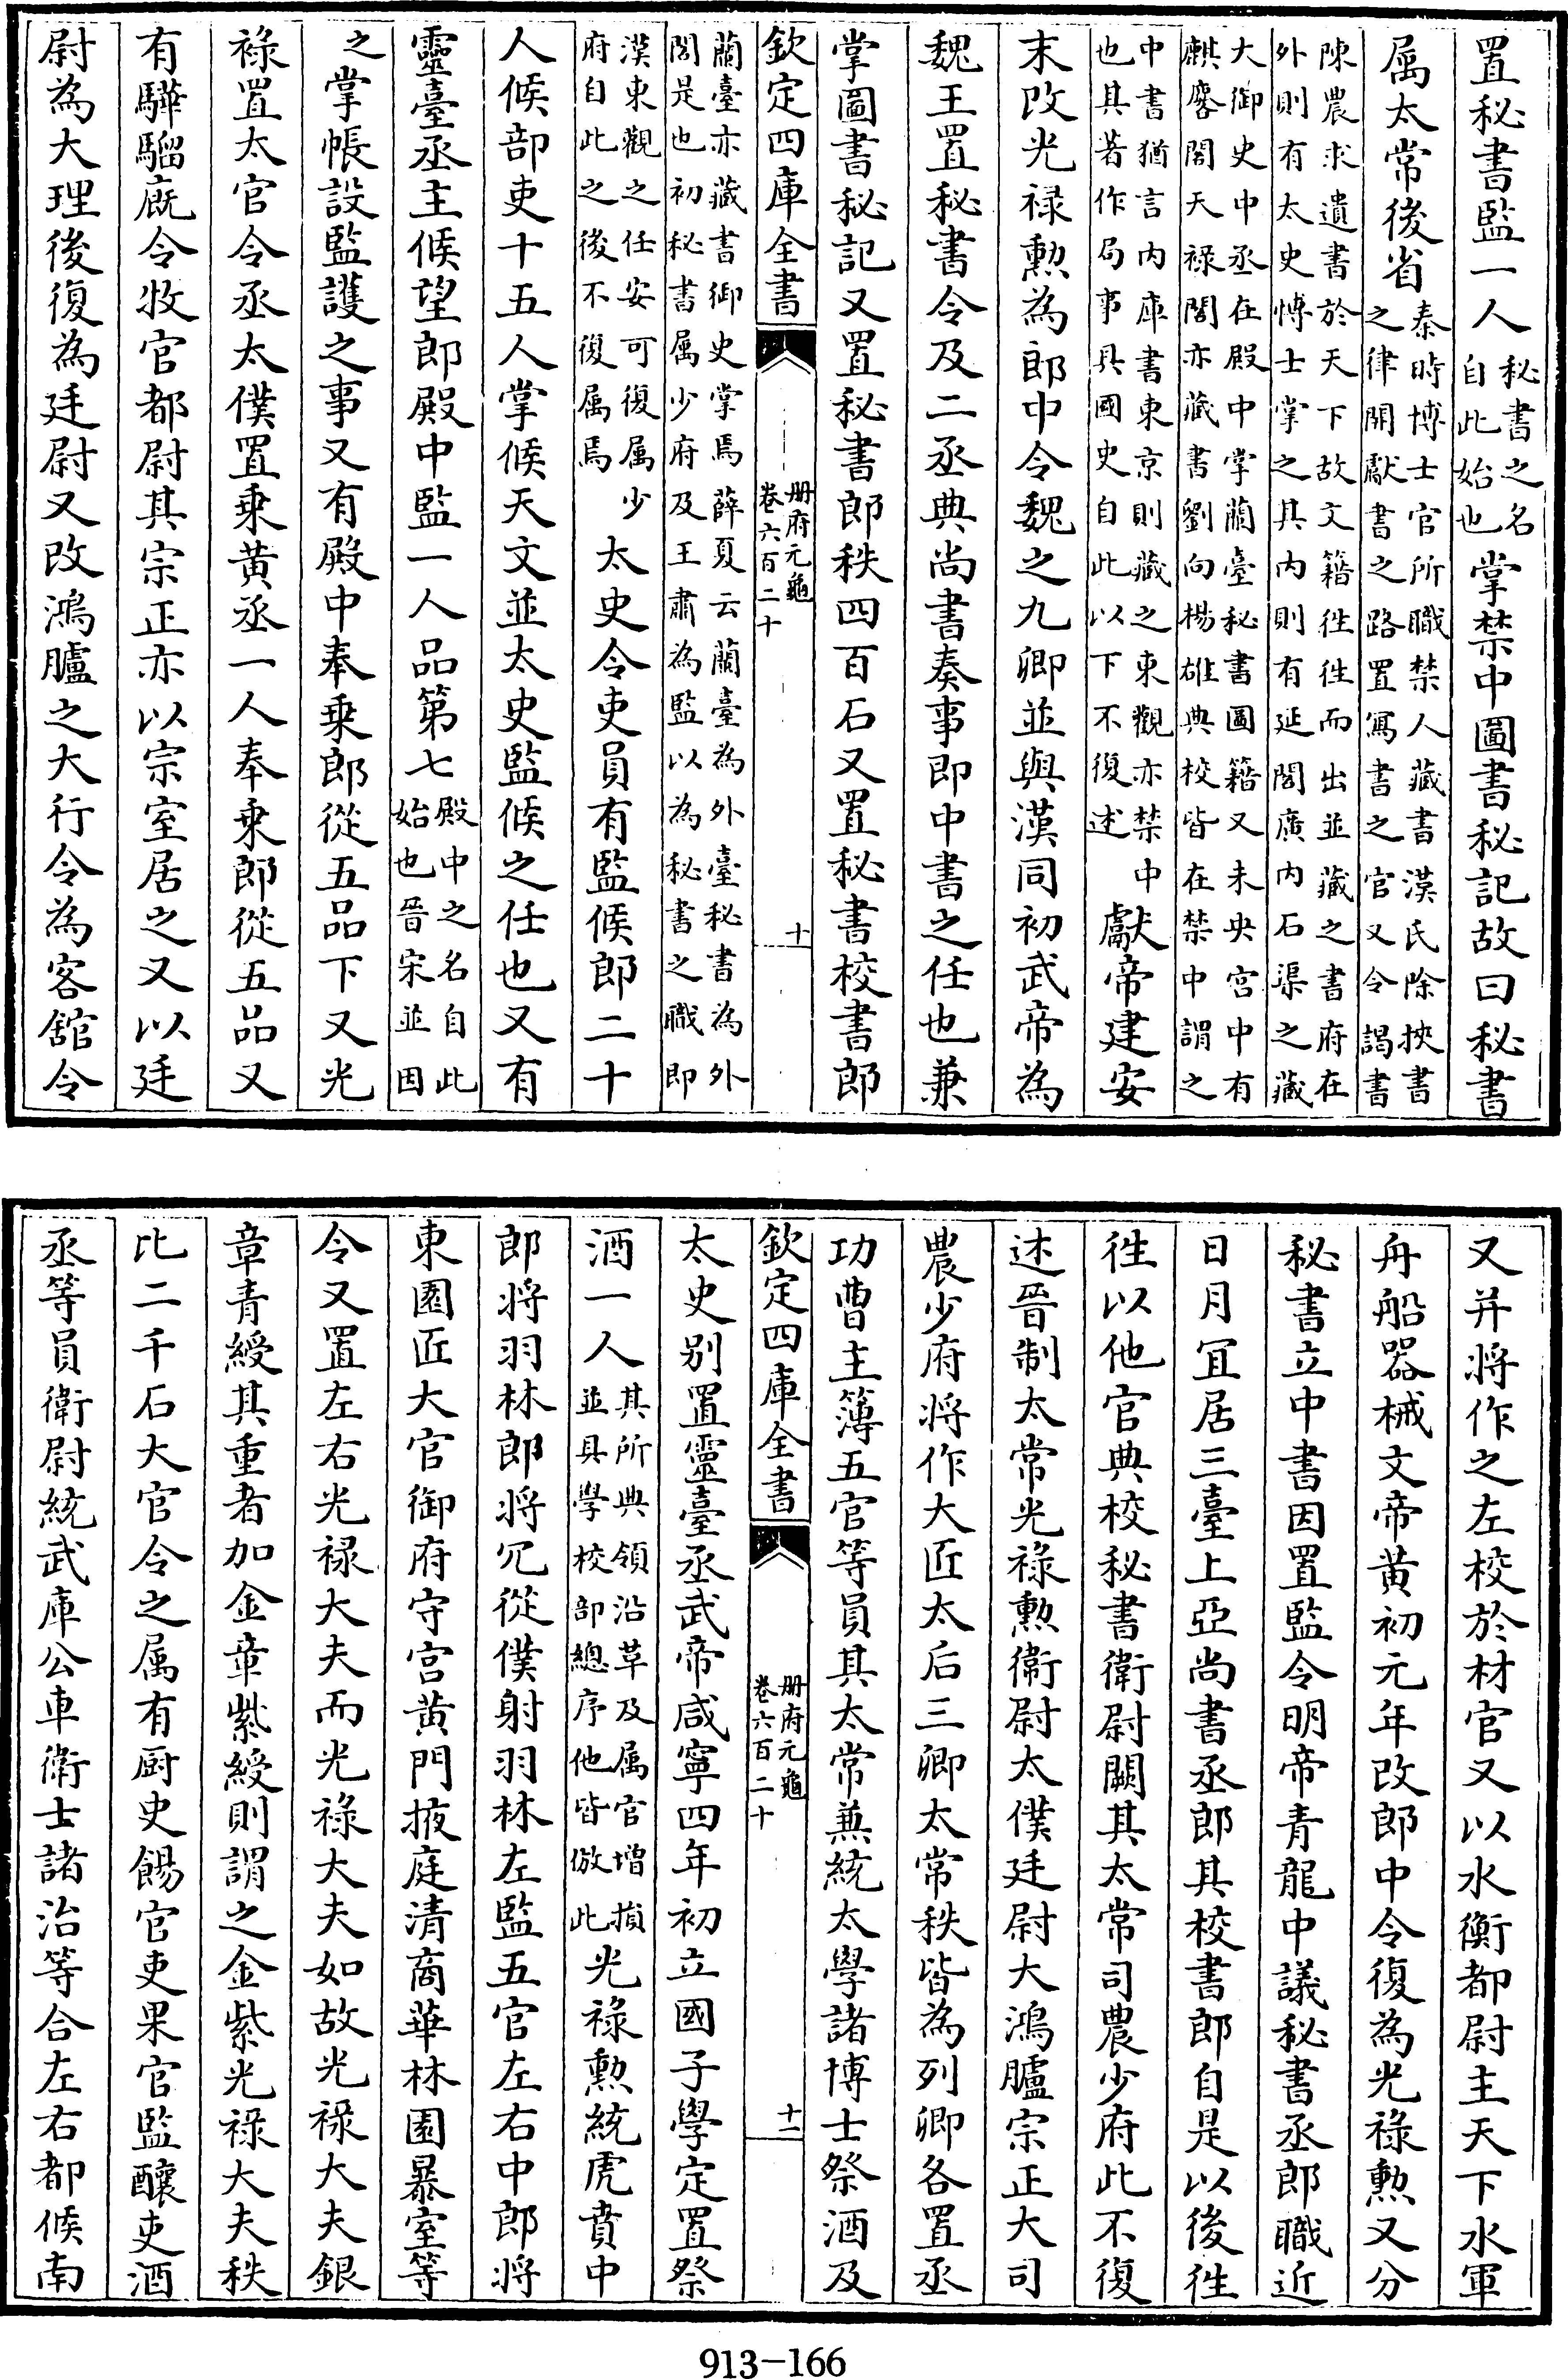 置秘書監一人秘書之名自此始也掌禁中圖書秘記故曰秘書
属太常後省秦時博士官所職禁人藏書漢氏除挾書之律開獻書之路置寫書之官又令謁書
陳農求遺書於天下故文籍徃徃而出並藏之書府在外則有太史博士掌之其内則有延閣廣内石渠之藏
大御史中丞在殿中掌蘭臺秘書圖籍又未央宫中有麒麐閣天禄閣亦藏書劉向楊雄典校皆在禁中謂之
中書猶言内庫書東京則藏之東觀亦禁中也其著作局事具國史自此以下不復述獻帝建安
末改光禄勲為郎中令魏之九卿並與漢同初武帝為
魏王置秘書令及二丞典尚書奏事即中書之任也兼
掌圖書秘記又置秘書郎秩四百石又置秘書校書郎
欽定四庫全書
册府元龜
卷六百二十
十
蘭臺亦藏書御史掌焉薛夏云蘭臺為外臺秘書為外閣是也初秘書属少府及王肅為監以為秘書之職即
漢東觀之任安可復属少府自此之後不復属焉太史令吏員有監候郎二十
人候部吏十五人掌候天文並太史監候之任也又有
靈臺丞主候望郎殿中監一人品第七殿中之名自此始也晉宋並因
之掌帳設監護之事又有殿中奉乗郎從五品下又光
禄置太官令丞太僕置乗黄丞一人奉乗郎從五品又
有驊騮廐令牧官都尉其宗正亦以宗室居之又以廷
尉為大理後復為廷尉又改鴻臚之大行令為客舘令
又并將作之左校於材官又以水衡都尉主天下水軍
舟船器械文帝黄初元年改郎中令復為光禄勲又分
秘書立中書因置監令明帝青龍中議秘書丞郎職近
日月冝居三臺上亞尚書丞郎其校書郎自是以後徃
徃以他官典校秘書衛尉闕其太常司農少府此不復
述晉制太常光禄勲衛尉太僕廷尉大鴻臚宗正大司
農少府將作大匠太后三卿太常秩皆為列卿各置丞
功曹主簿五官等員其太常兼統太學諸博士祭酒及
欽定四庫全書
册府元龜
卷六百二十
十一
太史别置靈臺丞武帝咸寧四年初立國子學定置祭
酒一人其所典領沿革及属官增損並具學校部總序他皆倣此光禄勲統虎賁中
郎將羽林郎將冗從僕射羽林左監五官左右中郎將
東園匠大官御府守宫黄門掖庭清商華林園暴室等
令又置左右光禄大夫而光禄大夫如故光禄大夫銀
章青綬其重者加金章紫綬則謂之金紫光禄大夫秩
比二千石大官令之属有厨史餳官吏果官監釀吏酒
丞等員衛尉統武庫公車衛士諸治等合左右都候南
913-166